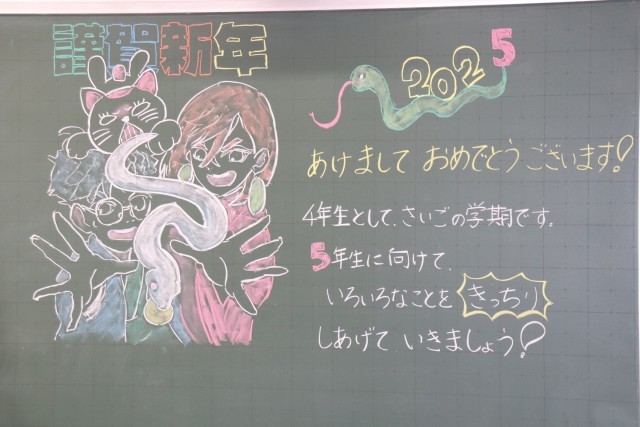 謹賀新年
2025
あけまして おめでとうございます!
4年生として、さいごの学期です。
5年生に向けて、
いろいろなことを きっちり
しあげて いきましょう!